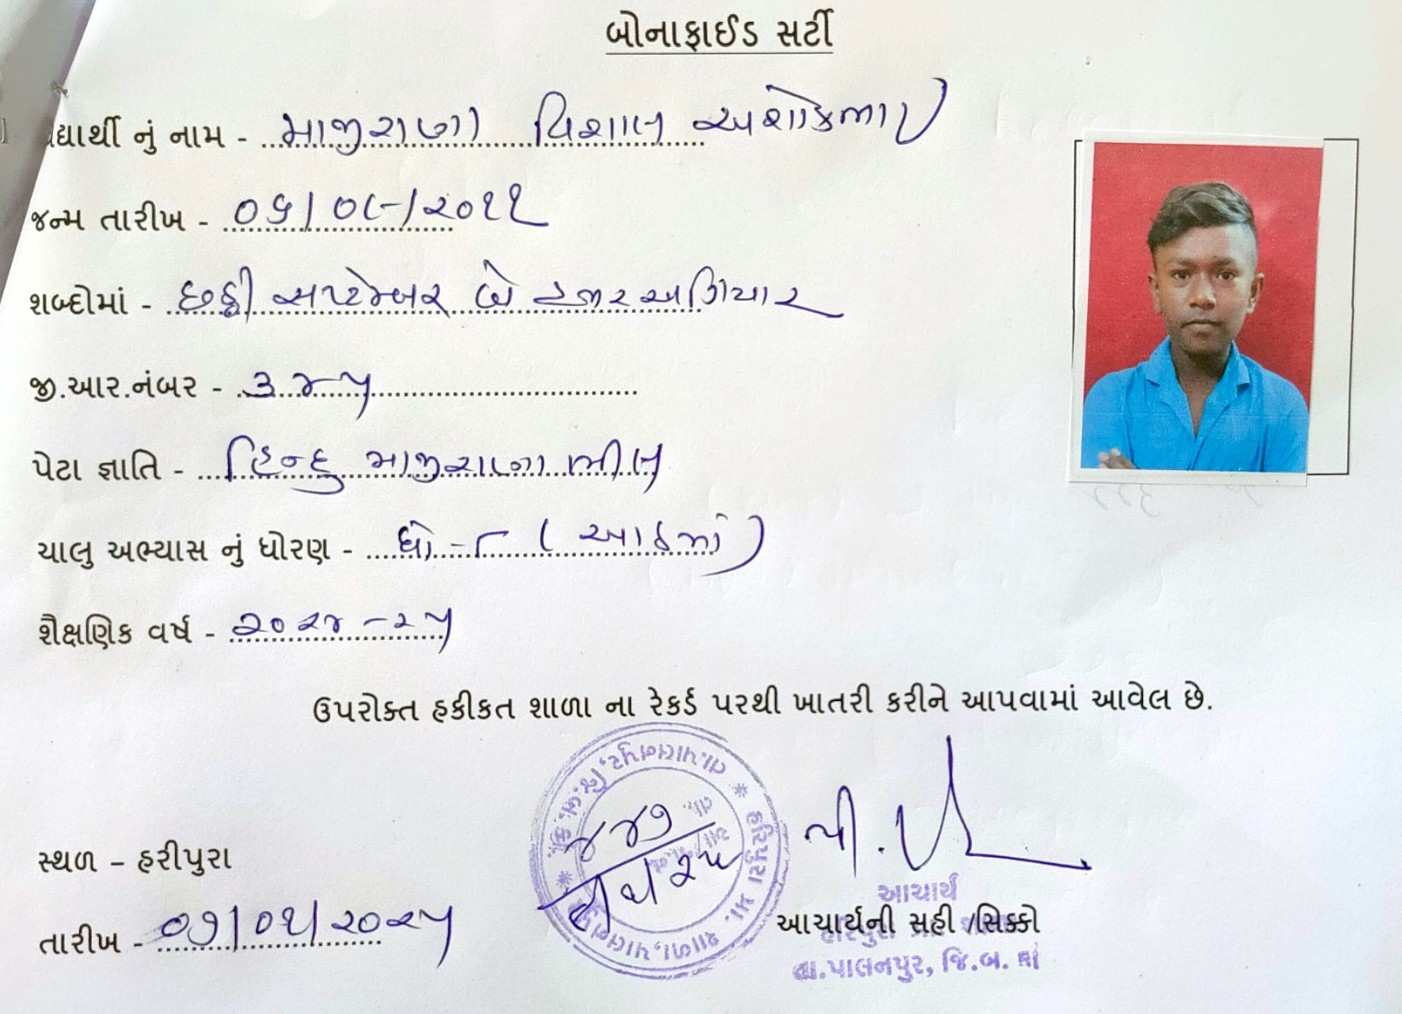 બોનાફાઈડ સર્ટી
વિદ્યાર્થી નું નામ - માજીરાણા વિશાલ અશોકભાઈ
જન્મ તારીખ - ૦૬/૦૯/૨૦૧૧
શબ્દોમાં - છઠ્ઠી સપ્ટેમ્બર બે હજાર અગિયાર
જી.આર.નંબર - ૩૪૫
પેટા જ્ઞાતિ - હિન્દુ માજીરાણા ભીલ
ચાલુ અભ્યાસ નું ધોરણ - ધો-૮ (આઠમાં)
શૈક્ષણિક વર્ષ - ૨૦૨૪-૨૫
ઉપરોક્ત હકીકત શાળા ના રેકર્ડ પરથી ખાતરી કરીને આપવામાં આવેલ છે.
હરિપુરા પ્રા. શાળા, પાલનપુર
તા.પાલનપુર, જિ.બ.કાં.
સ્થળ – હરીપુરા
આચાર્ય
આચાર્યની સહી /સિક્કો
તારીખ - ૦૭/૦૧/૨૦૨૫
તા.પાલનપુર, જિ.બ. કાં